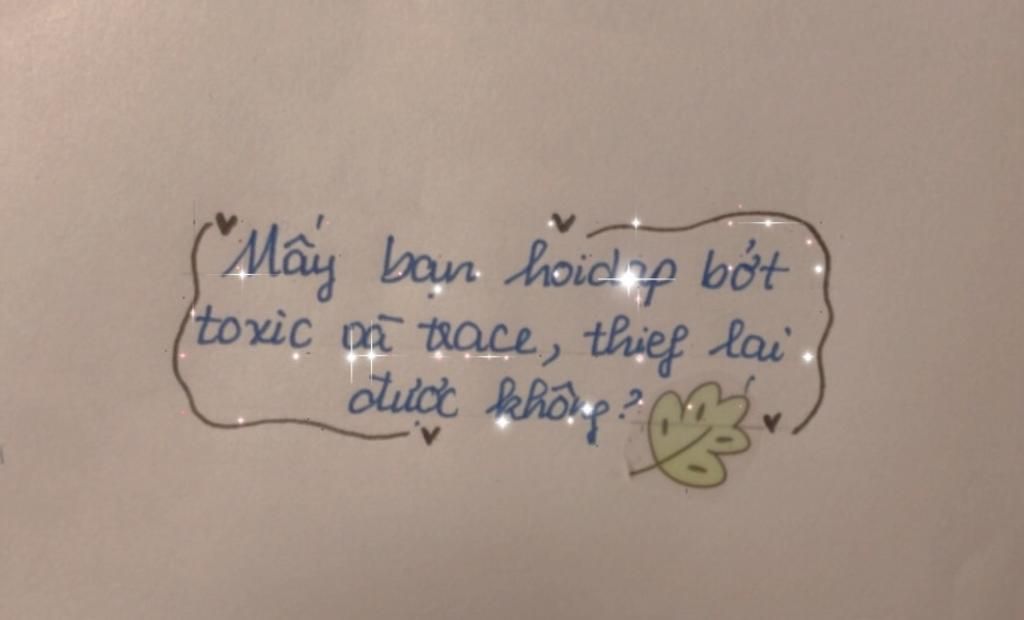 Mấy bạn hoidap bớt
toxic và trace, thief lại
được không?